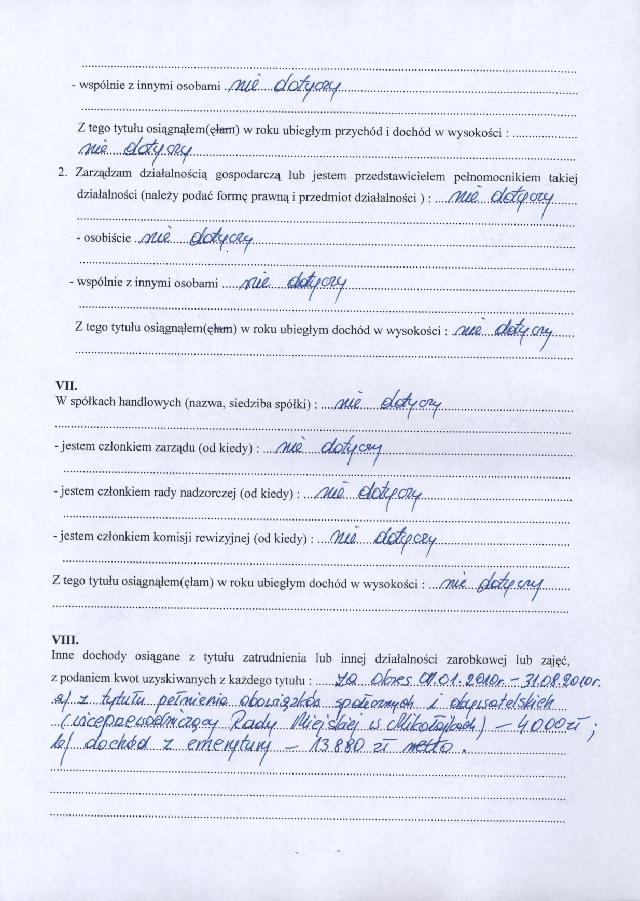 - wspólnie z innymi osobami nie dotyczy
Z tego tytułu osiągnąłem(ęłam) w roku ubiegłym przychód i dochód w wysokości :
nie dotyczy
2. Zarządzam działalnością gospodarczą lub jestem przedstawicielem pełnomocnikiem takiej
działalności (należy podać formę prawną i przedmiot działalności ) : nie dotyczy
- osobiście nie dotyczy
- wspólnie z innymi osobami nie dotyczy
Z tego tytułu osiągnąłem(ęłam) w roku ubiegłym dochód w wysokości : nie dotyczy
VII.
W spółkach handlowych (nazwa, siedziba spółki) : nie dotyczy
- jestem członkiem zarządu (od kiedy) : nie dotyczy
- jestem członkiem rady nadzorczej (od kiedy) : nie dotyczy
- jestem członkiem komisji rewizyjnej (od kiedy) : nie dotyczy
Z tego tytułu osiągnąłem(ęłam) w roku ubiegłym dochód w wysokości : nie dotyczy
VIII.
Inne dochody osiągane z tytułu zatrudnienia lub innej działalności zarobkowej lub zajęć,
z podaniem kwot uzyskiwanych z każdego tytułu : za okres 01.01.2010r. – 31.08.2010r.
a/ z tytułu pełnienia obowiązków społecznych i obywatelskich
(wiceprzewodniczący Rady Miejskiej w Mikołajkach) – 4000zł ;
b/ dochód z emerytury – 13 880 zł netto.